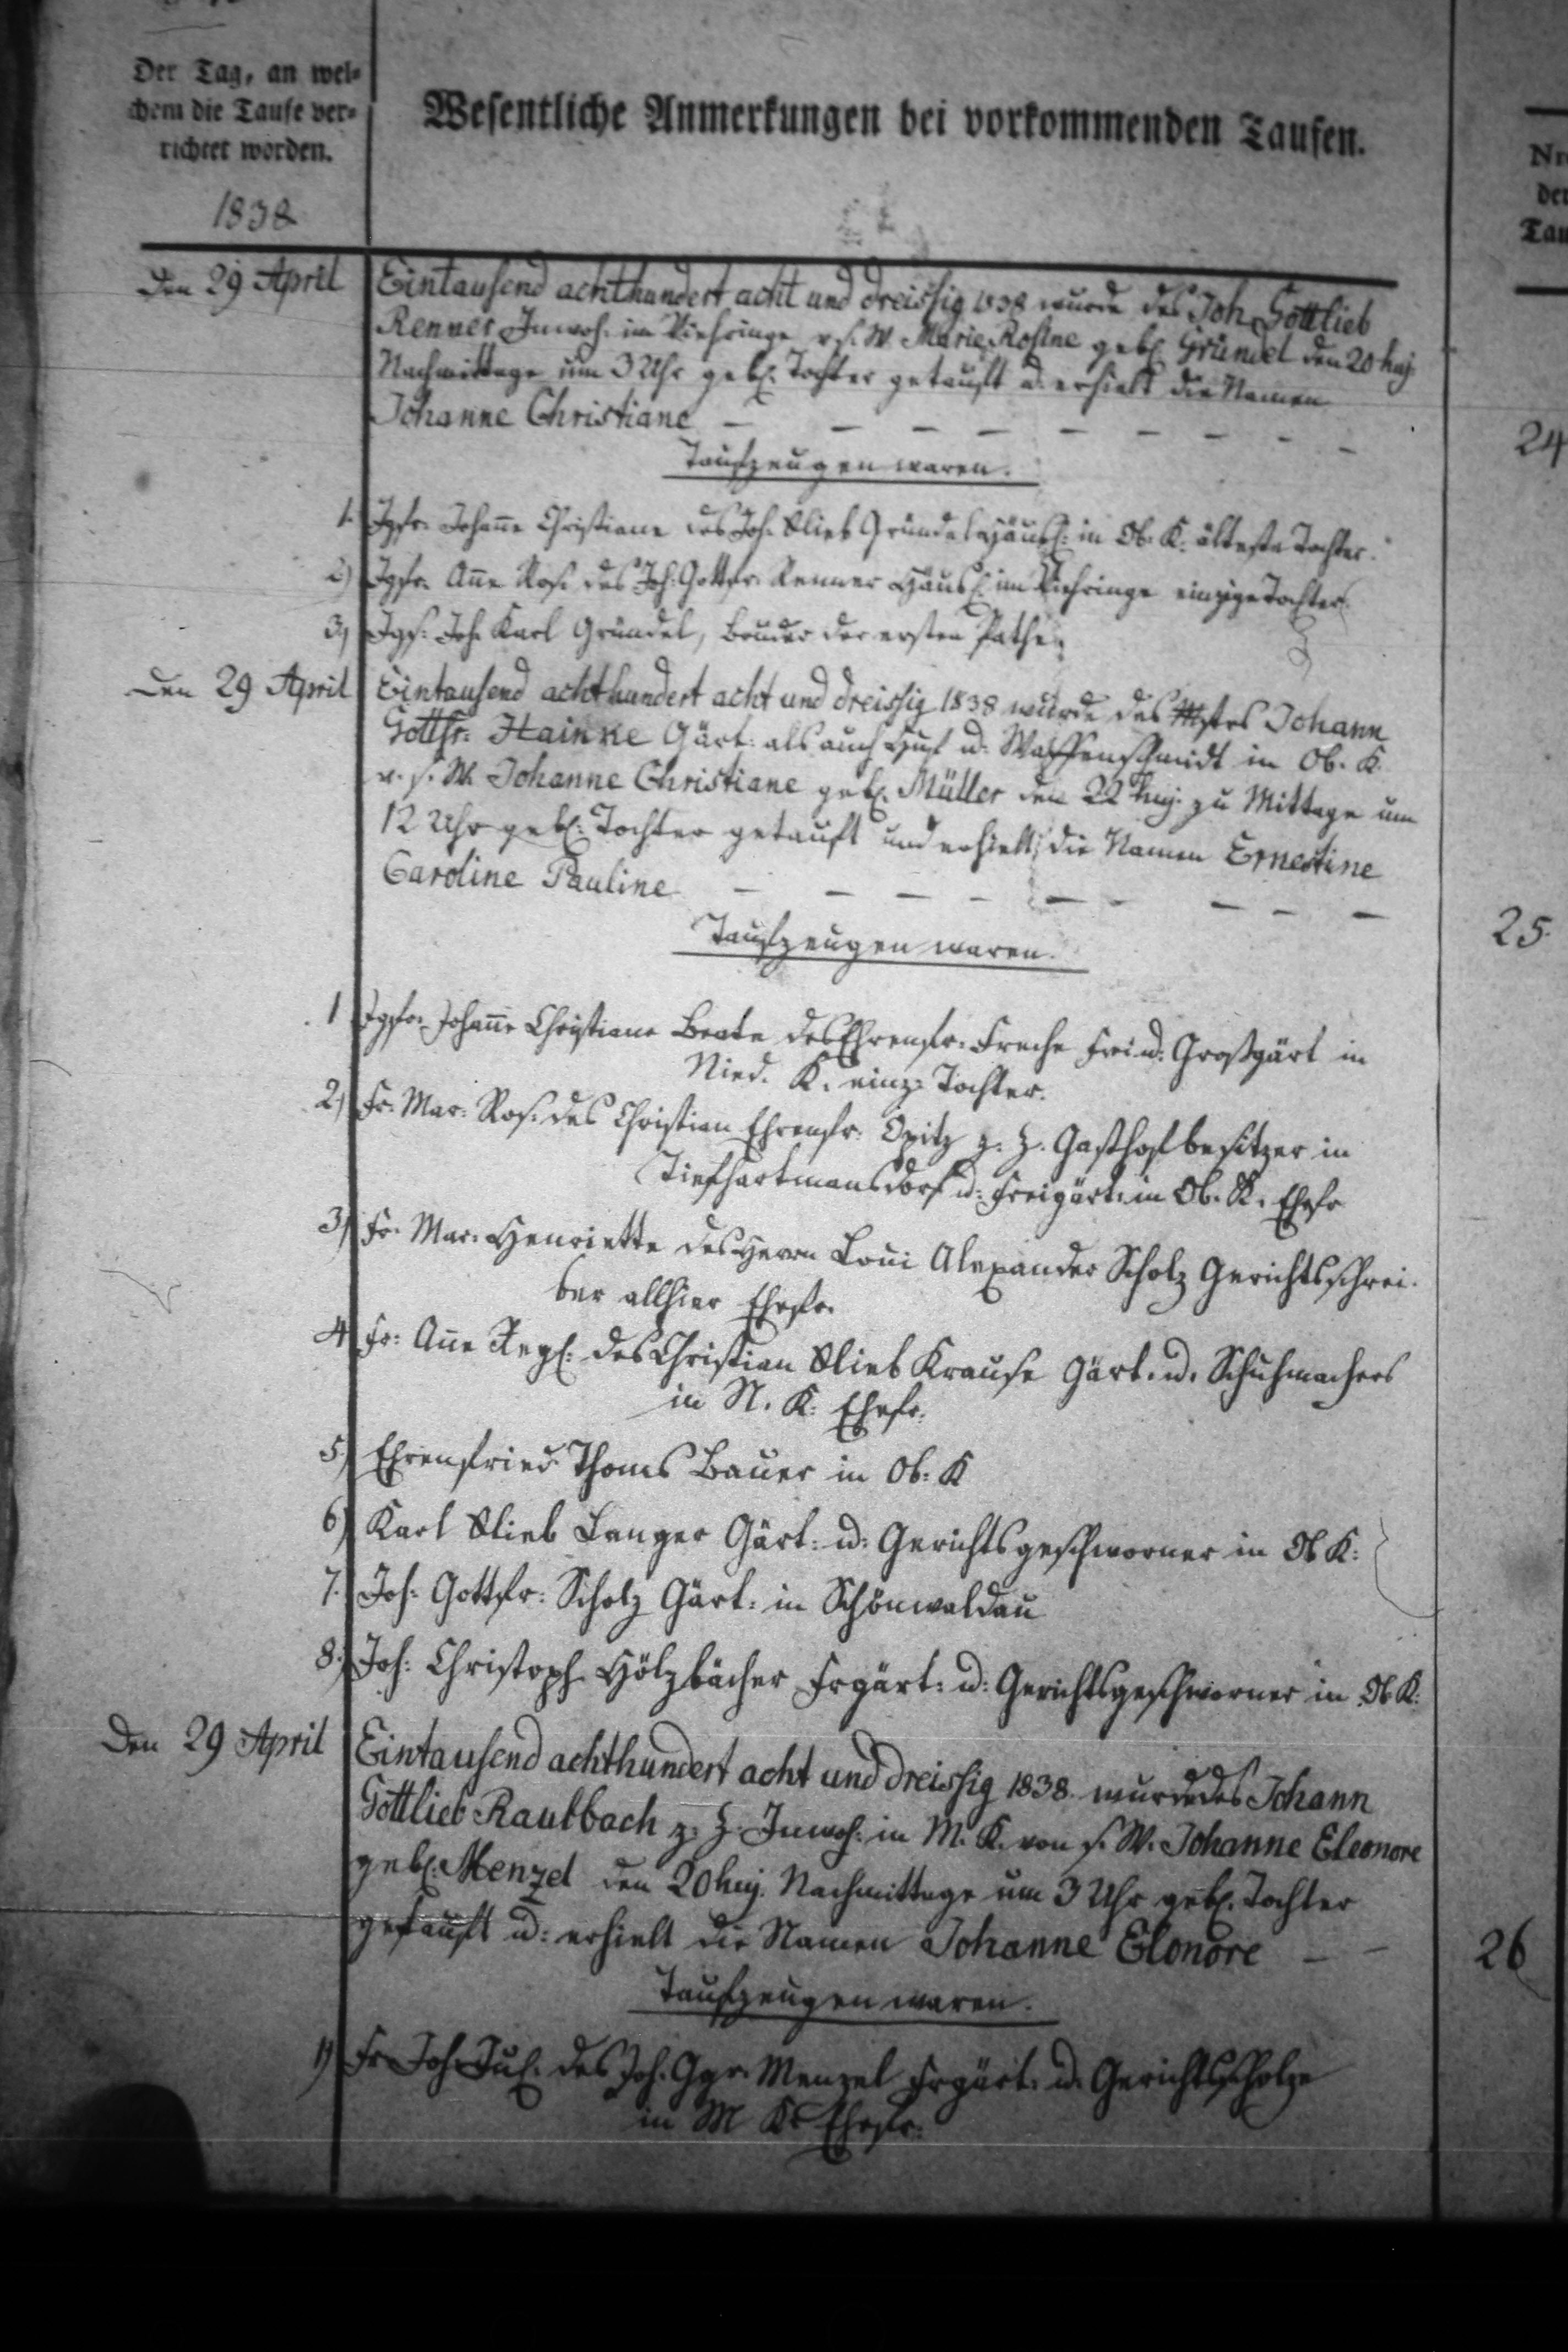 Der Tag, an wel-
chem die Taufe ver-
richtet worden.
1838
Wesentliche Anmerkungen bei vorkommenden Taufen.
Den 29 April
Eintausend achthundert acht und dreissig 1838 wurde des Joh. Gottlieb
Renner Inwoh: im Viehringe v. s. W. Marie Rosine geb. Gründel den 20 huj.
Nachmittage um 3 Uhr geb. Tochter getauft u. erhielt die Namen
Johanne Christiane
Taufzeugen waren.
1. Jgfr. Johanne Christiane des Joh. Glieb Gründel Häusl: in Ob. K. älteste Tochter.
2) Jgfr. Anne Ros. des Joh: Gottfr. Renner Häusl: im Viehringe einzige Tochter.
3) Jgs. Joh. Karl Gründel, Bruder der ersten Pathe.
24
Den 29 April
Eintausend achthundert acht und dreissig 1838 wurde des Mstrs Johann
Gottfr. Hainke Gärt: als auch Huf u. Waffenschmidt in Ob. K.
v. s. W. Johanne Christiane geb. Müller den 22 huj. zu Mittage um
12 Uhr geb. Tochter getauft und erhielt die Namen Ernestine
Caroline Pauline
Taufzeugen waren.
1 Jgfr. Johanne Christiane Beate des Ehrenfr. Freche Großgärt in
Nied. K. einz: Tochter.
2) Fr. Mar. Ros. des Christian Ehrenfr. Opitz z. Z. Gasthofbesitzer in
Tiefhartmansdorf u: Freigärt: in Ob. K. Ehefr
3) Fr. Mar. Henriette des Herrn Loui Alexander Scholz Gerichtsschrei-
ber allhier Ehefr.
4 Fr: Anne Reg: des Christian Glieb Krause Gärt. u. Schuhmachers
in N. K: Ehefr:
5) Ehrenfried Thoms Bauer in Ob: K
6) Karl Glieb Langer Gärt: u: Gerichtsgeschworner in Ob K:
7. Joh: Gottfr: Scholz Gärt: in Schönwaldau
8. Joh: Christoph Hölzbächer Frgärt: u: Gerichtsgeschworner in Ob K:
25.
Den 29 April
Eintausend achthundert acht und dreissig 1838 wurde des Johann
Gottlieb Raulbach z. Z. Inwoh: in M. K. von s. W. Johanne Eleonore
geb. Menzel den 20 huj. Nachmittage um 3 Uhr geb. Tochter
getauft u: erhielt die Namen Johanne Elonore
Taufzeugen waren.
1) Fr Joh. Jul. des Joh. Ggr. Menzel Frgärt: u. Gerichtsscholze
in M K. Ehefr:
26